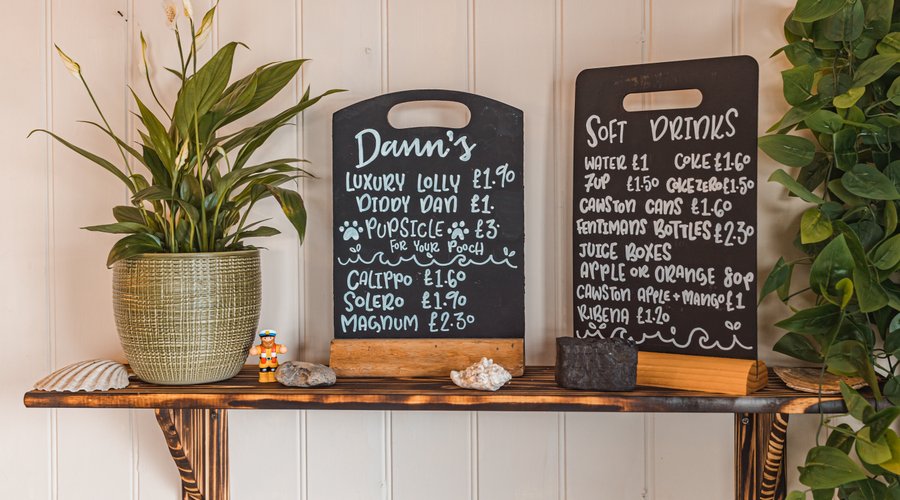 Dann's
LUXURY LOLLY £1.90
DIDDY DAN £1.
PUPSICLE £3.
FOR YOUR POOCH
CALIPPO £1.60
SOLERO £1.90
MAGNUM £2.30
SOFT DRINKS
WATER £1 COKE £1.60
7UP £1.50 COKE ZERO £1.50
CAWSTON CANS £1.60
FENTIMANS BOTTLES £2.30
JUICE BOXES
APPLE OR ORANGE 80p
CAWSTON APPLE + MANGO £1
RIBENA £1.20